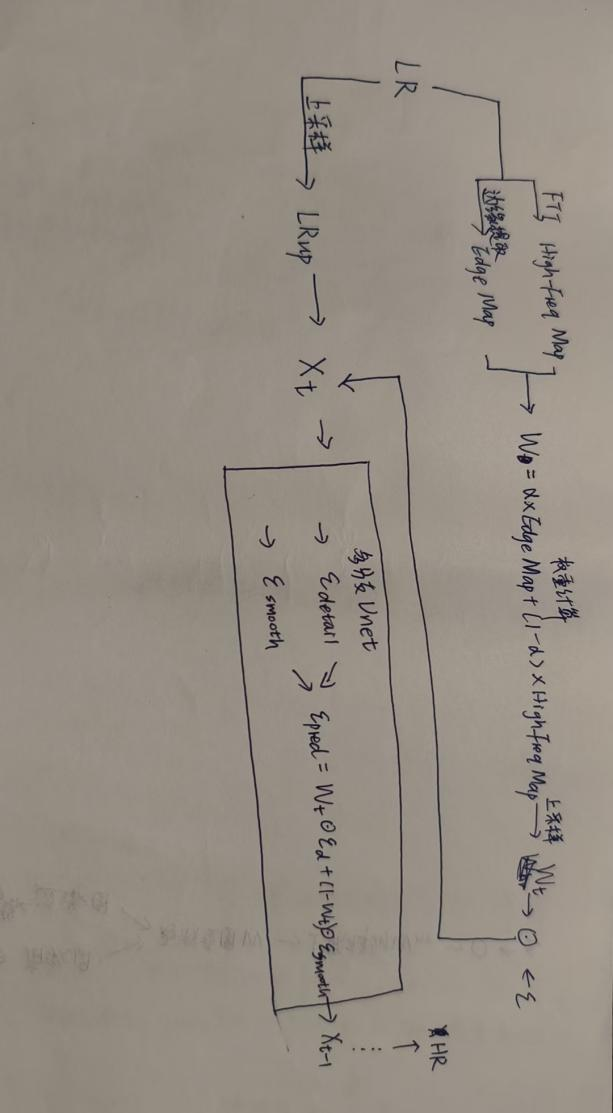 LR
FTT High-freq Map
边缘提取 Edge Map
权重计算
W = α×Edge Map + (1-α) × High freq Map
上采样
Wt
⊙ ← ε
上采样 LRup → Xt →
多分支 Unet
→ εdetail
→ εsmooth
εpred = Wt ⊙ εd + (1-Wt) ⊙ εsmooth → Xt-1
⋮
HR